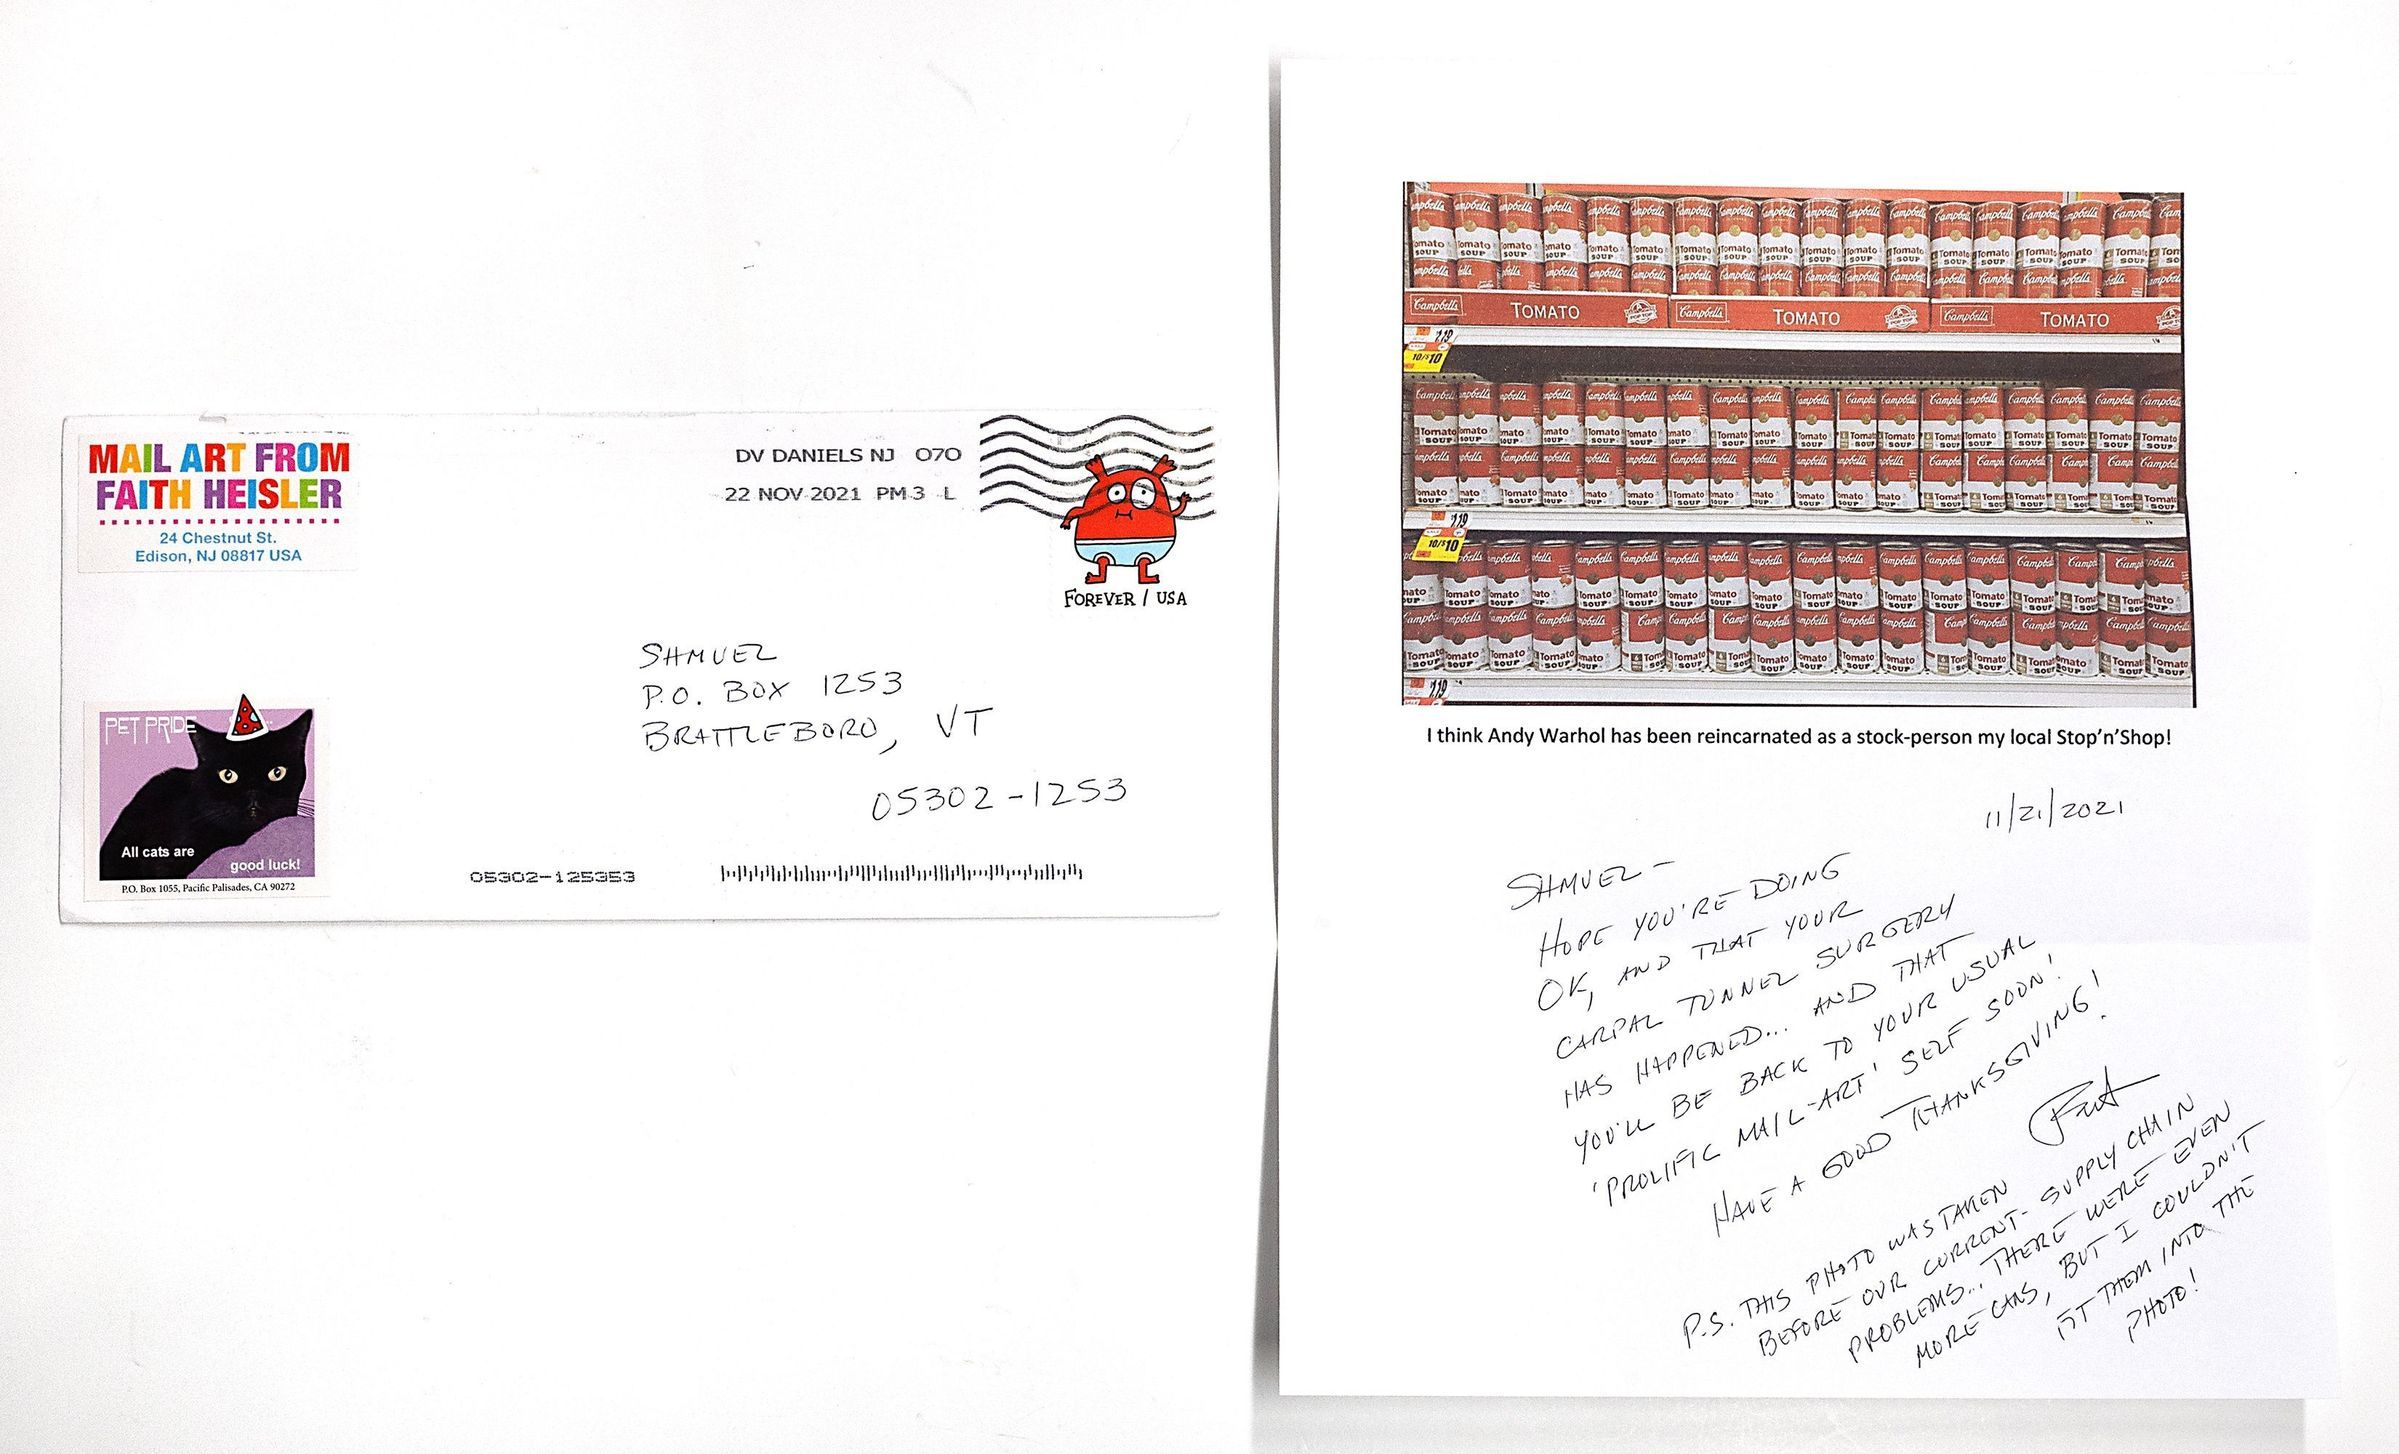 MAIL ART FROM
FAITH HEISLER
24 Chestnut St.
Edison, NJ 08817 USA
DV DANIELS NJ 070
22 NOV 2021 PM 3 L
FOREVER / USA
SHMUEL
P.O. BOX 1253
BRATTLEBORO, VT
05302-1253
PET PRIDE
All cats are
good luck!
P.O. Box 1055, Pacific Palisades, CA 90272
05302-125353
Campbell's TOMATO Campbell's TOMATO Campbell's TOMATO
10/$10
10/$10
I think Andy Warhol has been reincarnated as a stock-person my local Stop'n'Shop!
11/21/2021
SHMUEL-
HOPE YOU'RE DOING
OK, AND THAT YOUR
CARPAL TUNNEL SURGERY
HAS HAPPENED... AND THAT
YOU'LL BE BACK TO YOUR USUAL
'PROLIFIC MAIL-ART' SELF SOON!
HAVE A GOOD THANKSGIVING!
P.S. THIS PHOTO WAS TAKEN
BEFORE OUR CURRENT- SUPPLY CHAIN
PROBLEMS... THERE WERE EVEN
MORE CANS, BUT I COULDN'T
FIT THEM INTO THE
PHOTO!